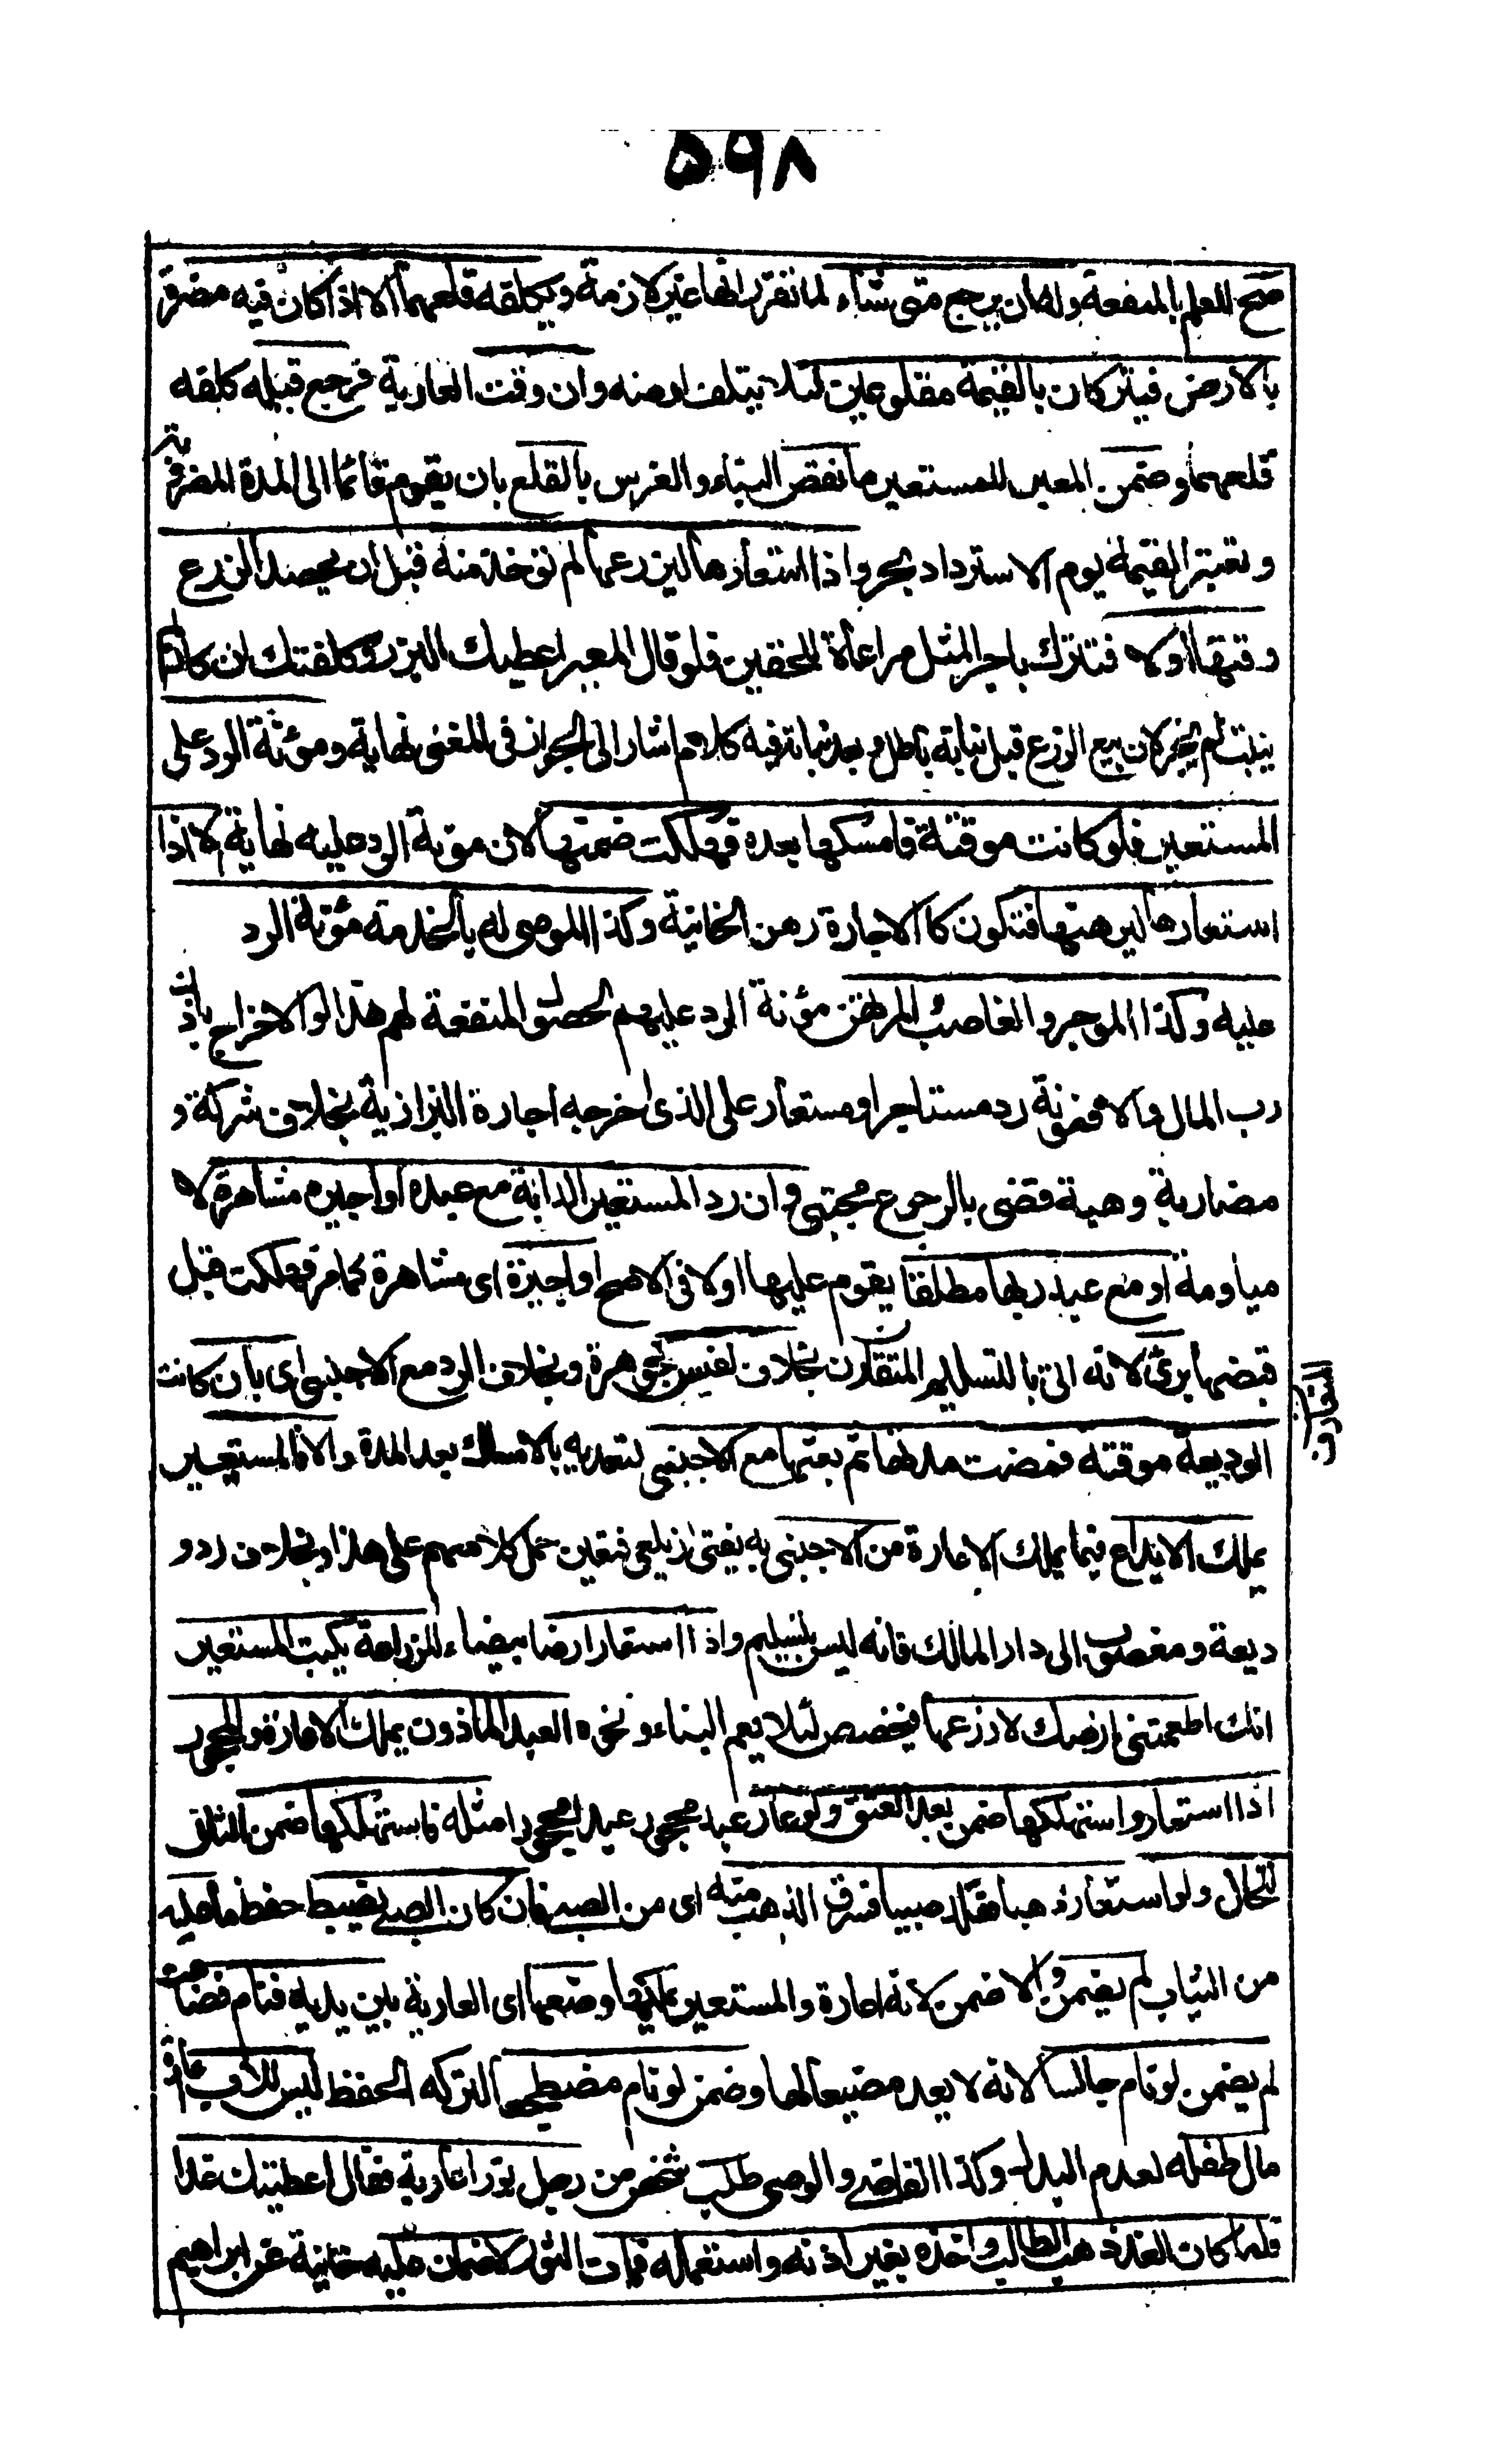 ۵۹۸
صح للعلم بالمنفعة وله ان يرجع متى شاء لما تقرر انها غير لازمة ويكلفه قلعهما الا اذا كان فيه مضرة
بالارض فيتركان بالقيمة مقلوعين لئلا يتلف ارضه وان وقت العارية فرجع قبله كلفه
قلعهما وضمن المعير للمستعير ما نقص البناء والغرس بالقلع بان يقوم قائما الى المدة المضروبة
وتعتبر القيمة يوم الاسترداد بحر واذا استعارها ليزرعها لم توخذ منه قبل ان يحصد الزرع
وقتها اولا فتترك باجر المثل مراعاة للحقين فلو قال المعير اعطيك البزر وكلفتك ان كان لم
ينبت لم يجز لان بيع الزرع قبل نباته باطل وبعد نباته فيه كلام اشار الى الجواز في المغنى نهاية ومؤنة الرد على
المستعير فلو كانت موقتة فامسكها بعده فهلكت ضمنها لان مؤنة الرد عليه نهاية الا اذا
استعارها ليرهنها فتكون كالاجارة رهن الخانية وكذا الموصى له بالخدمة مؤنة الرد
عليه وكذا الموجر والغاصب المرتهن مؤنة الرد عليهم لحصول المنفعة لهم هذا لو الاخراج باذن
رب المال والا فمؤنة رد مستاجر ومستعار على الذى اخرجه اجارة البزازية بخلاف شركة و
مضاربة وهبة قضى بالرجوع مجتبى وان رد المستعير الدابة مع عبده او اجيره مشاهرة لا
مياومة او مع عبد ربها مطلقا يقوم عليها اولا في الاصح او اجيره اى مشاهرة كما مر فهلكت قبل
قبضها برئ لانه اتى بالتسليم المتعارف بخلاف نفيس كجوهرة وبخلاف الرد مع الاجنبى اى بان كانت
الوديعة موقتة فمضت مدتها ثم بعثها مع الاجنبى لتعديه بالامساك بعد المدة والا فالمستعير
يملك الايداع فيما يملك الاعارة من الاجنبى به يفتى زيلعى فتعين حمل كلامهم على هذا وبخلاف رد و
ديعة ومغصوب الى دار المالك فانه ليس بتسليم واذا استعار ارضا بيضاء للزراعة يكتب المستعير
انك اطعمتنى ارضك لازرعها فيخصص لئلا يعم البناء ونحوه العبد الماذون يملك الاعارة والمحجور
اذا استعار واستهلكها ضمن بعد العتق ولو عار عبد محجور عبدا محجورا مثله فاستهلكها ضمن الثانى
للحال ولو استعار ذهبا فقلد صبيا فسرق الذهب منه اى من الصبى فان كان الصبى يضبط حفظ ما عليه
من الثياب لم يضمن والا ضمن لانه اعارة والمستعير يملكها وضعها اى العارية بين يديه فنام فضاعت
لم يضمن لو نام جالسا لانه لا يعد مضيعا لها وضمن لو نام مضطجعا لتركه الحفظ ليس للاب اعارة
مال طفله لعدم البدل وكذا القاضى والوصى طلب شخص من رجل ثورا عارية فقال اعطيتك غدا
فلما كان الغد ذهب الطالب واخذه بغير اذنه واستعمله فمات الثور لاضمان عليه خانية عن ابراهيم